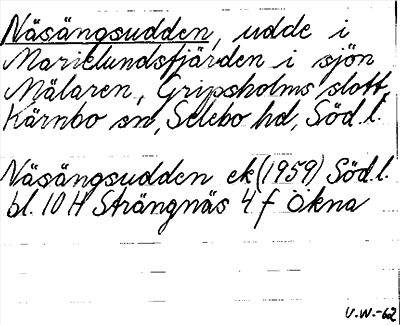 Näsängsudden, udde i
Marielundsfjärden i sjön
Mälaren, Gripsholms slott,
Kärnbo sn, Selebo hd, Söd.l.
Näsängsudden ek (1959) Söd.l.
bl. 10 H Strängnäs 4 f Ökna
V.W.-62